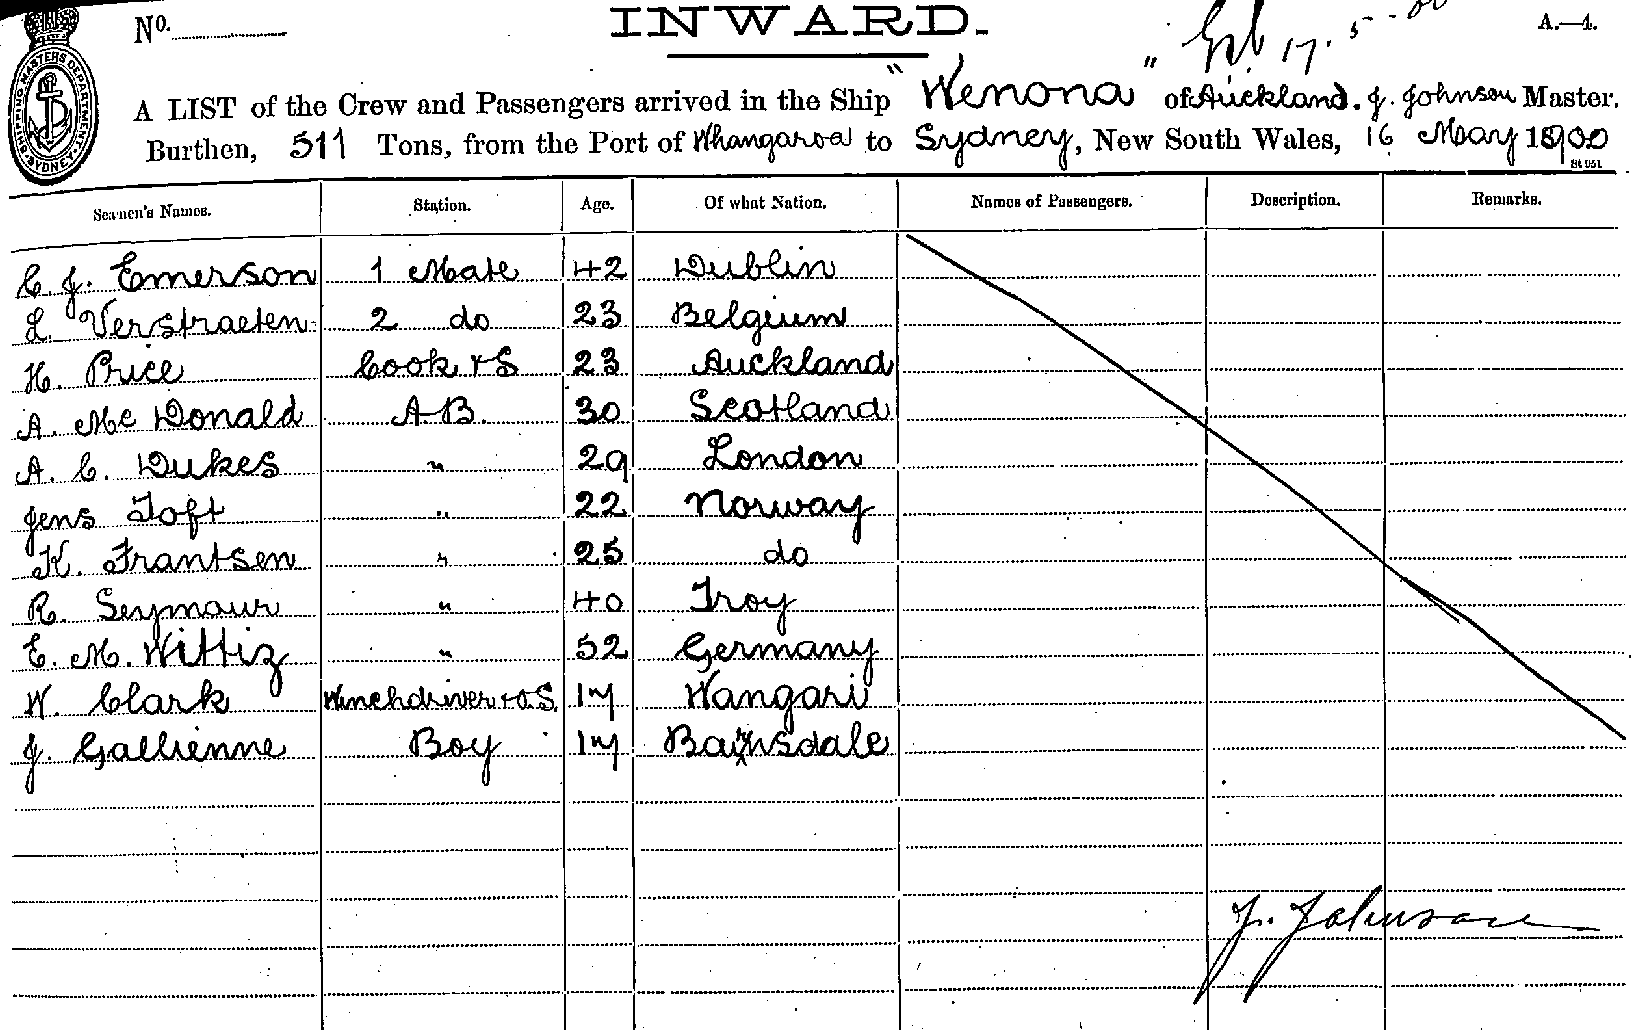 No. INWARD. 17.5.00 A.—4.
A LIST of the Crew and Passengers arrived in the Ship "Wenona" of Auckland. J. Johnson Master.
Burthen, 511 Tons, from the Port of Whangaroa to Sydney, New South Wales, 16 May 1900
SHIPPING MASTERS DEPARTMENT
Seamen's Names. Station. Age. Of what Nation. Names of Passengers. Description. Remarks.
C J. Emerson 1 Mate 42 Dublin
L. Verstraeten 2 do 23 Belgium
H. Price Cook & S 23 Auckland
A. Mc Donald A.B. 30 Scotland
A. C. Dukes " 29 London
Jens Toft " 22 Norway
K. Frantsen " 25 do
R. Seymour " 40 Troy
E. M. Wittig " 52 Germany
W. Clark Winchdriver & O.S. 17 Wangari
J. Gallienne Boy 17 Bairnsdale
J. Johnson